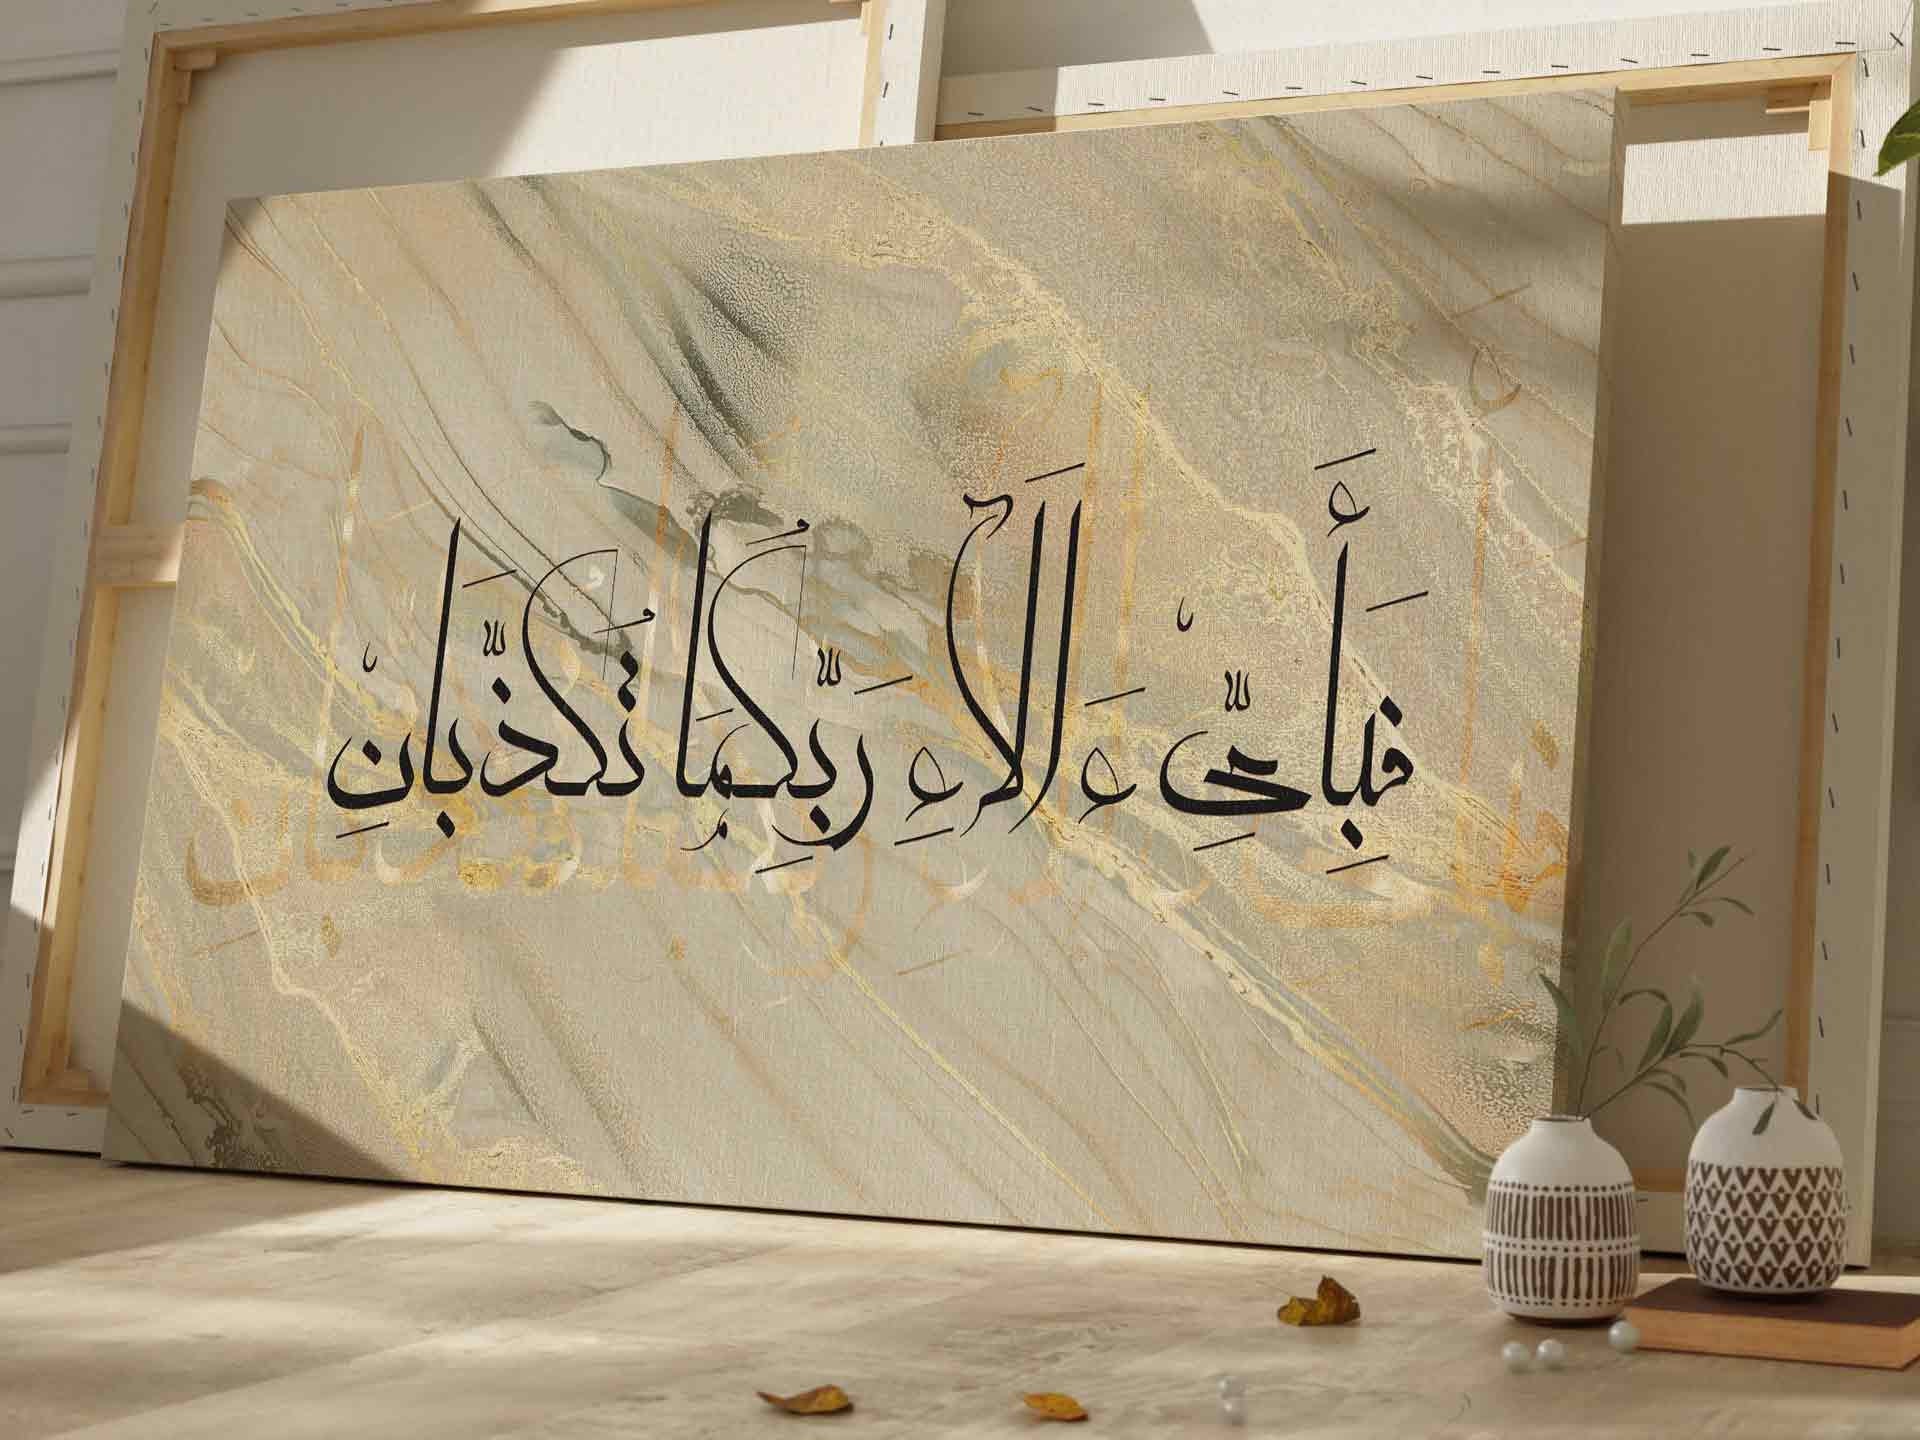 فَبِأَيِّ ءَالَاءِ رَبِّكُمَا تُكَذِّبَانِ